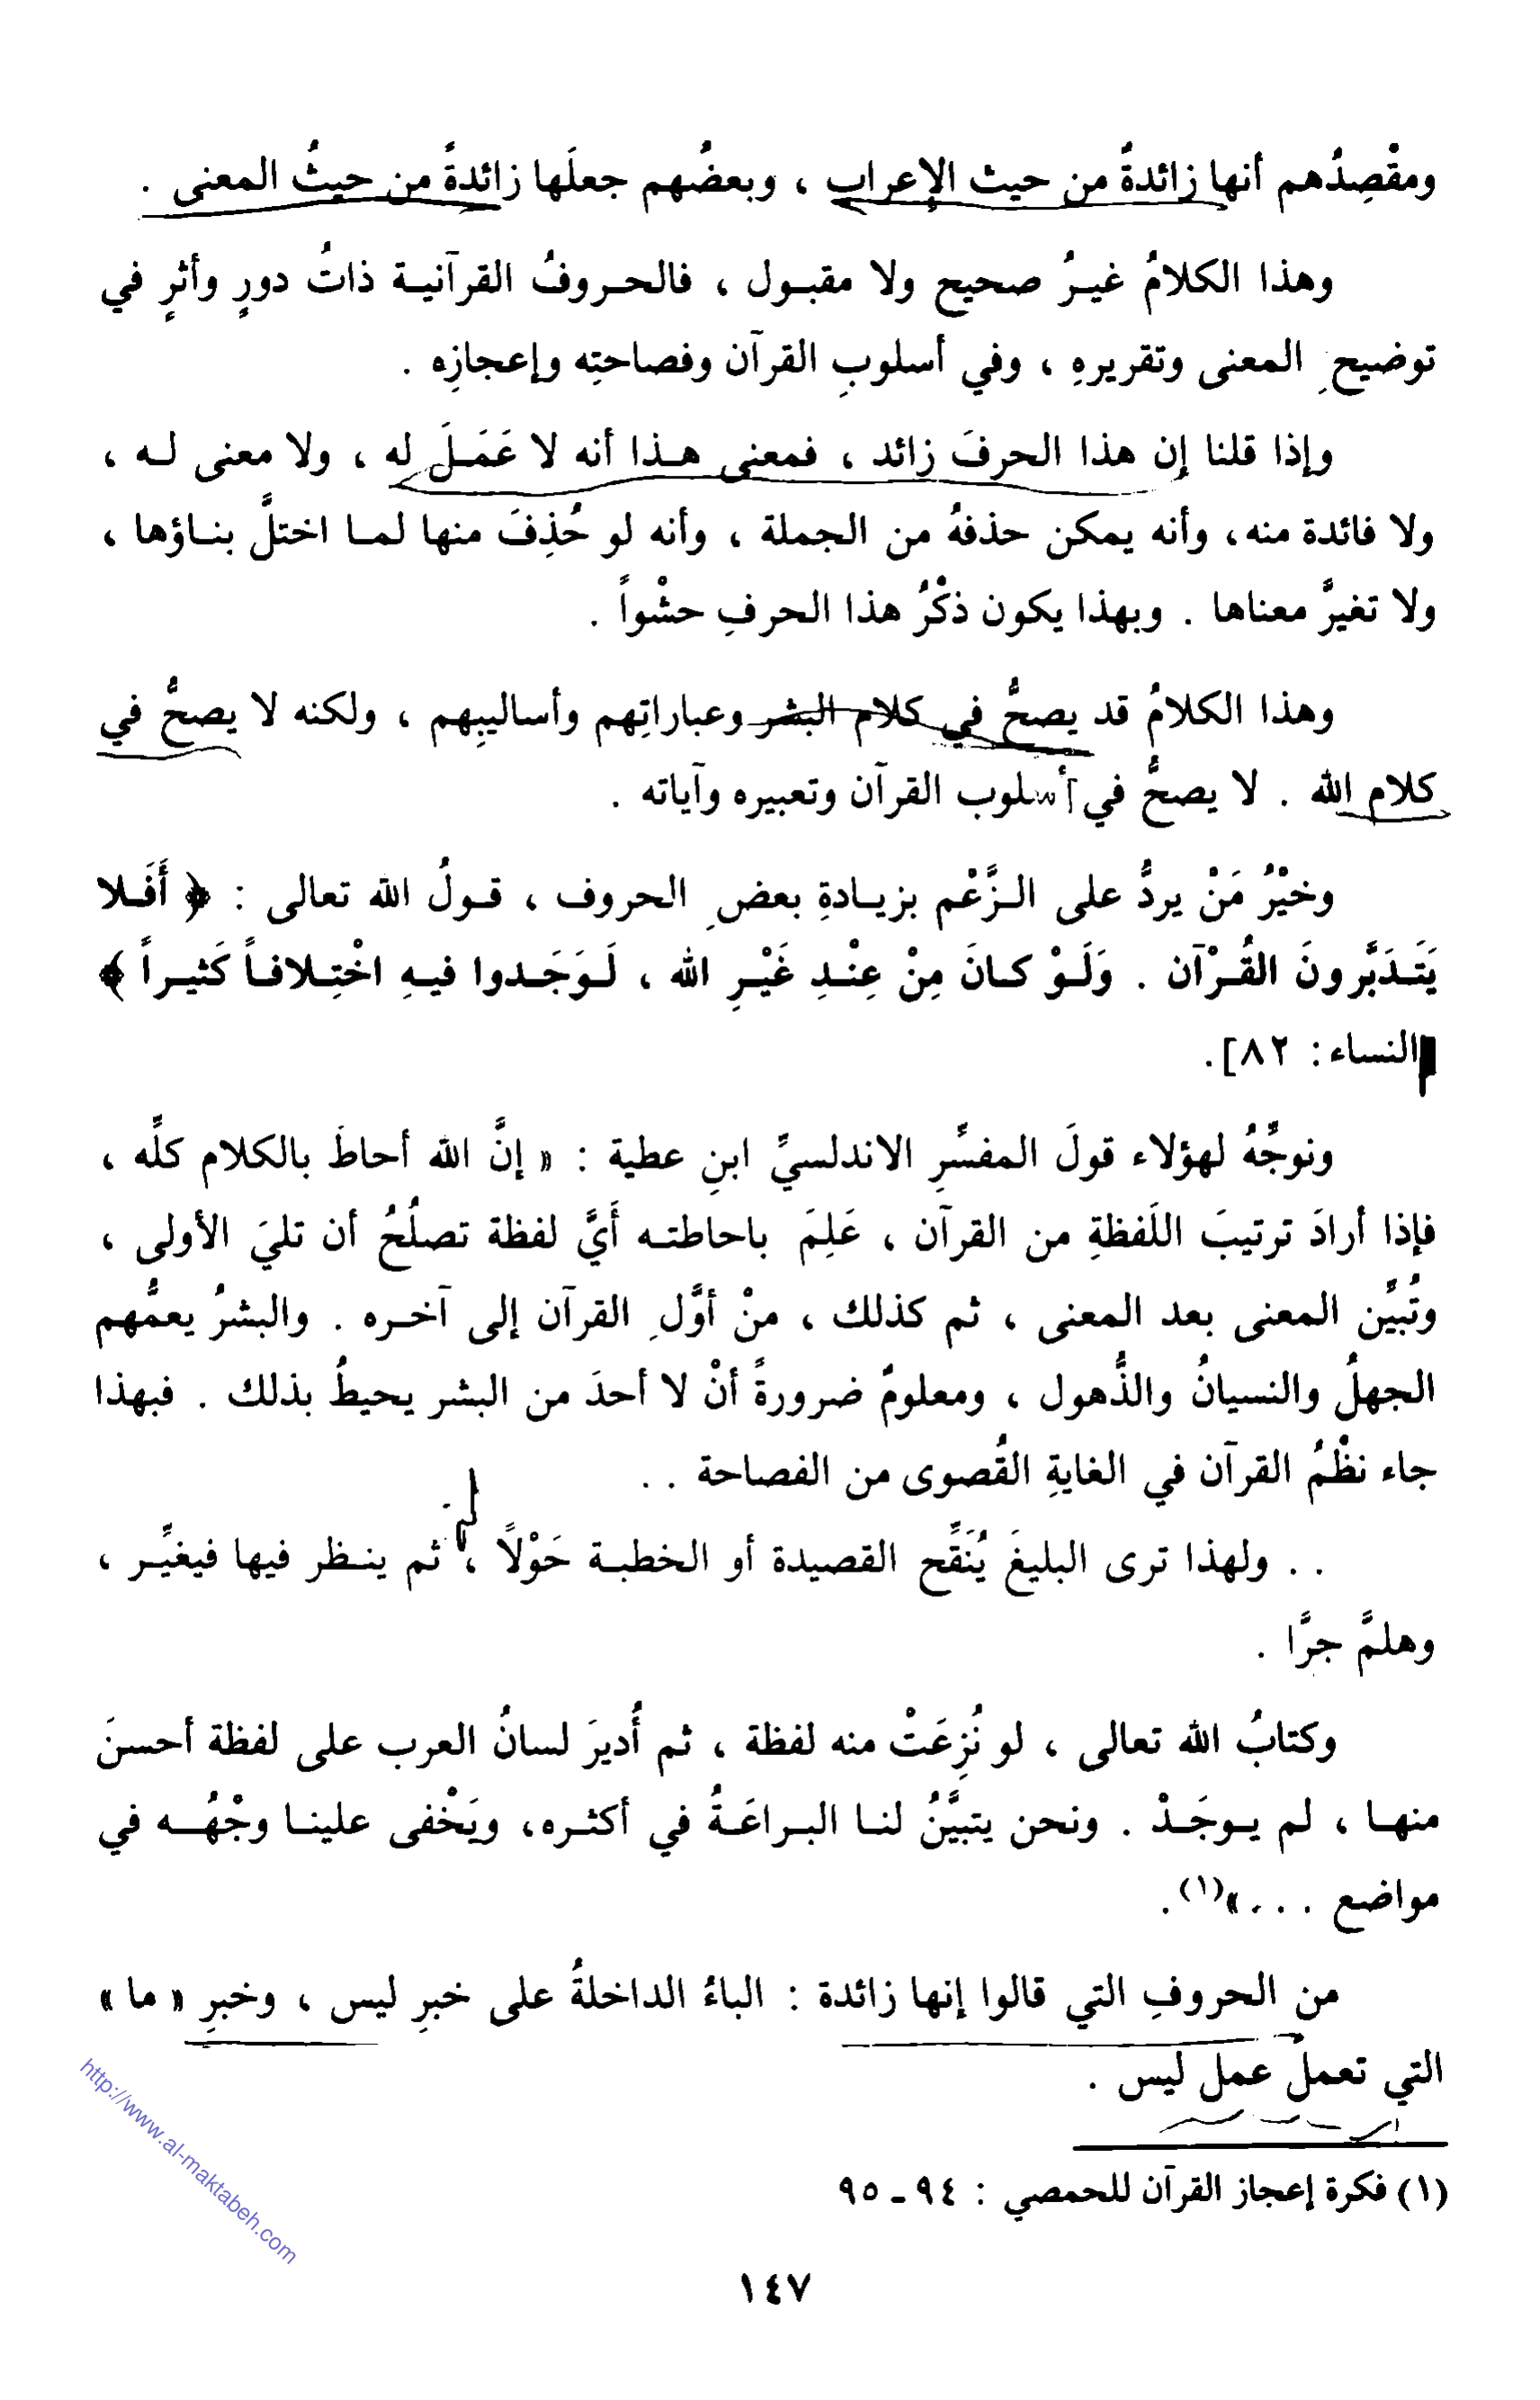 ومقْصِدُهم أنها زائدةٌ من حيث الإعراب ، وبعضُهم جعلَها زائدةً من حيثُ المعنى .
وهذا الكلامُ غيرُ صحيح ولا مقبول ، فالحروفُ القرآنية ذاتُ دورٍ وأثرٍ في
توضيحِ المعنى وتقريرهِ ، وفي أسلوبِ القرآن وفصاحتِه وإعجازِه .
وإذا قلنا إن هذا الحرفَ زائد ، فمعنى هذا أنه لا عَمَلَ له ، ولا معنى له ،
ولا فائدة منه، وأنه يمكن حذفهُ من الجملة ، وأنه لو حُذِفَ منها لما اختلَّ بناؤها ،
ولا تغيَّر معناها . وبهذا يكون ذكْرُ هذا الحرفِ حشْواً .
وهذا الكلامُ قد يصحُّ في كلام البشر وعباراتِهم وأساليبِهم ، ولكنه لا يصحُّ في
كلام الله . لا يصحُّ في أسلوب القرآن وتعبيره وآياته .
وخيْرُ مَنْ يردُّ على الزَّعْم بزيادةِ بعضِ الحروف ، قولُ الله تعالى : ﴿ أَفَلا
يَتَدَبَّرونَ القُرْآن . وَلَوْ كانَ مِنْ عِنْدِ غَيْرِ الله ، لَوَجَدوا فيهِ اخْتِلافاً كَثيراً ﴾
[النساء: ٨٢].
ونوجِّهُ لهؤلاء قولَ المفسِّرِ الاندلسيِّ ابنِ عطية : « إنَّ الله أحاطَ بالكلام كلِّه ،
فإذا أرادَ ترتيبَ اللَفظةِ من القرآن ، عَلِمَ باحاطته أَيَّ لفظة تصلُحُ أن تليَ الأولى ،
وتُبيِّن المعنى بعد المعنى ، ثم كذلك ، منْ أوَّلِ القرآن إلى آخره . والبشرُ يعمُّهم
الجهلُ والنسيانُ والذُّهول ، ومعلومٌ ضرورةً أنْ لا أحدَ من البشر يحيطُ بذلك . فبهذا
جاء نظْمُ القرآن في الغايةِ القُصوى من الفصاحة . .
. . ولهذا ترى البليغَ يُنَقِّح القصيدة أو الخطبة حَوْلاً ، ثم ينظر فيها فيغيِّر ،
وهلمَّ جرَّا .
وكتابُ الله تعالى ، لو نُزِعَتْ منه لفظة ، ثم أُديرَ لسانُ العرب على لفظة أحسنَ
منها ، لم يوجَدْ . ونحن يتبيَّنُ لنا البراعَةُ في أكثره، ويَخْفى علينا وجْهُه في
مواضع . . . .»(١).
من الحروفِ التي قالوا إنها زائدة : الباءُ الداخلةُ على خبرِ ليس ، وخبرِ « ما »
التي تعملُ عمل ليس .
(١) فكرة إعجاز القرآن للحمصي : ٩٤ ـ ٩٥
١٤٧
http://www.al-maktabeh.com